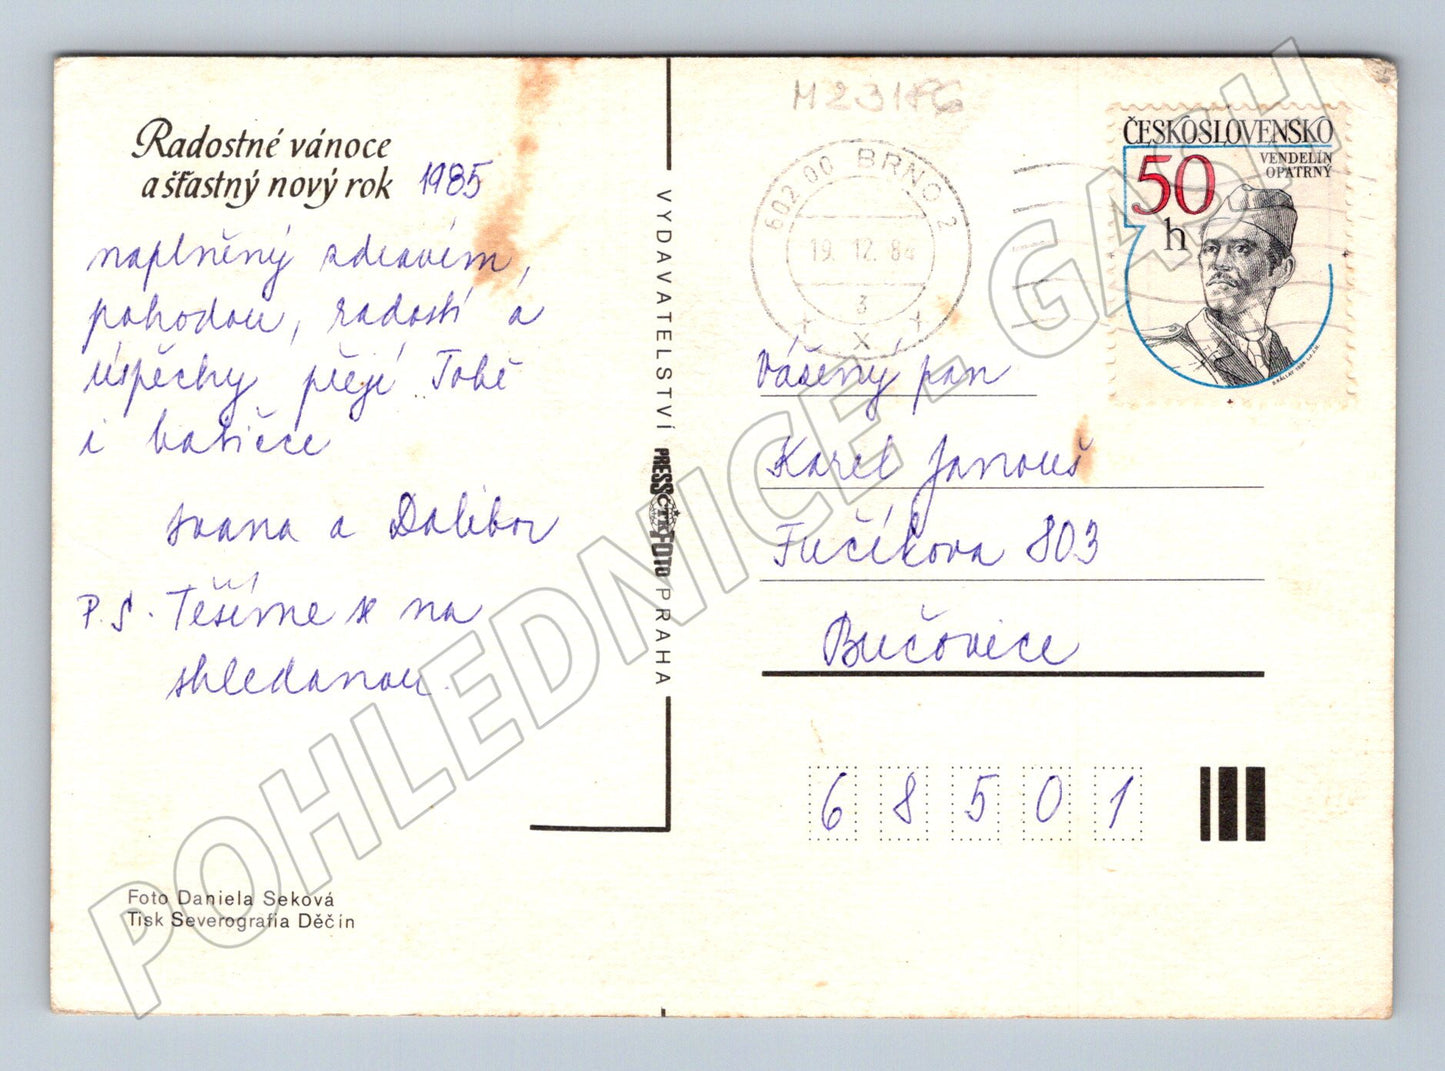 Radostné vánoce
a šťastný nový rok 1985
naplněný zdravím,
pohodou, radostí a
úspěchy přejí Tobě
i babičce
Ivana a Dalibor
P.S. Těšíme se na
shledanou.
Foto Daniela Seková
Tisk Severografia Děčín
VYDAVATELSTVÍ PRESSFOTO PRAHA
ČTK
M231FG
602 00 BRNO 2
19.12.84
3
ČESKOSLOVENSKO
50
h
VENDELÍN
OPATRNÝ
Vážený pan
Karel Janouš
Fučíkova 803
Bučovice
68501
POHLEDNICE - GASH